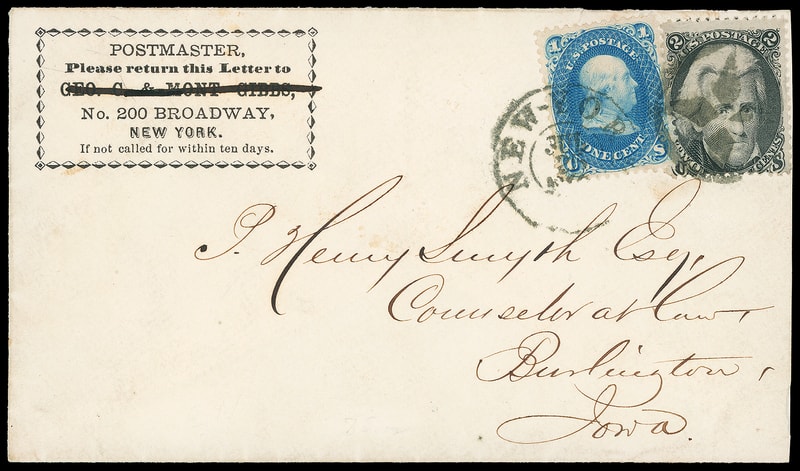 POSTMASTER,
Please return this Letter to
GEO. C. & MONT GIBBS,
No. 200 BROADWAY,
NEW YORK.
If not called for within ten days.
1 1
U.S. POSTAGE
ONE CENT
U S
2 2
U.S. POSTAGE
U S
NEW-YOR
J. Henry Smyth Esq,
Counselor at Law,
Burlington,
Iowa.